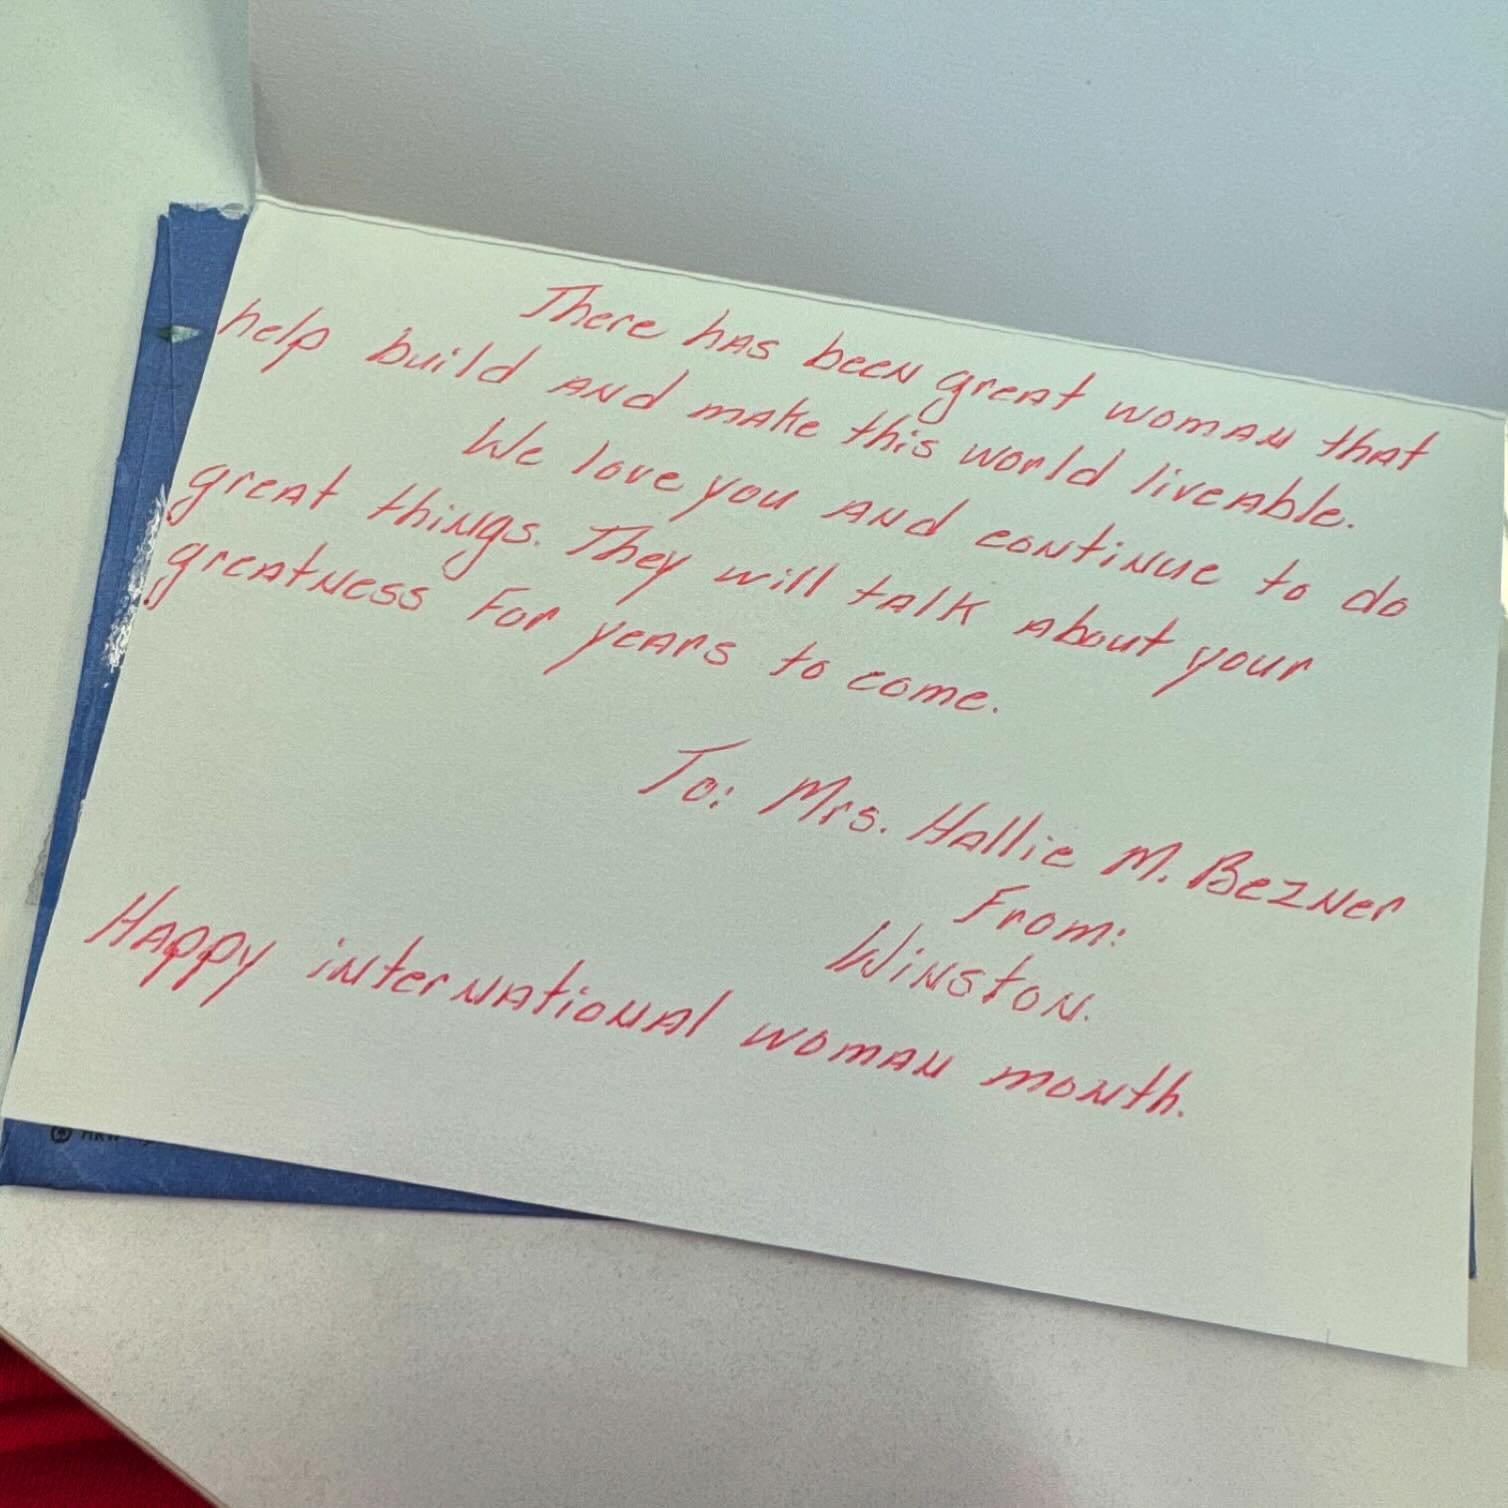 There has been great woman that
help build and make this world liveable.
We love you and continue to do
great things. They will talk about your
greatness For years to come.
To: Mrs. Hallie M. Bezner
From:
Winston.
Happy international woman month.